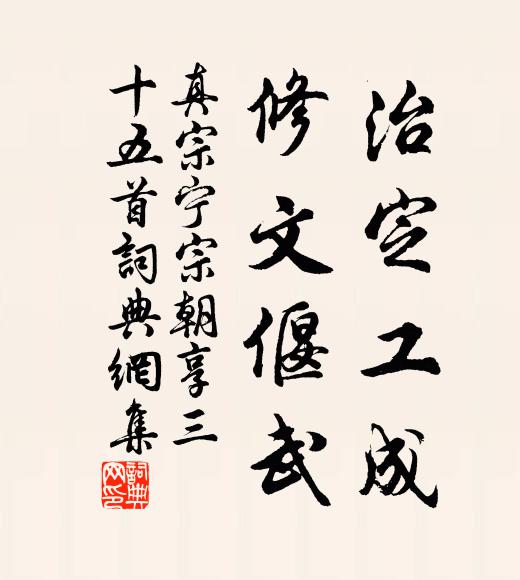 治定工成
修文偃武
真宗宁宗朝享三
十五首詞典網集
詞典
网印